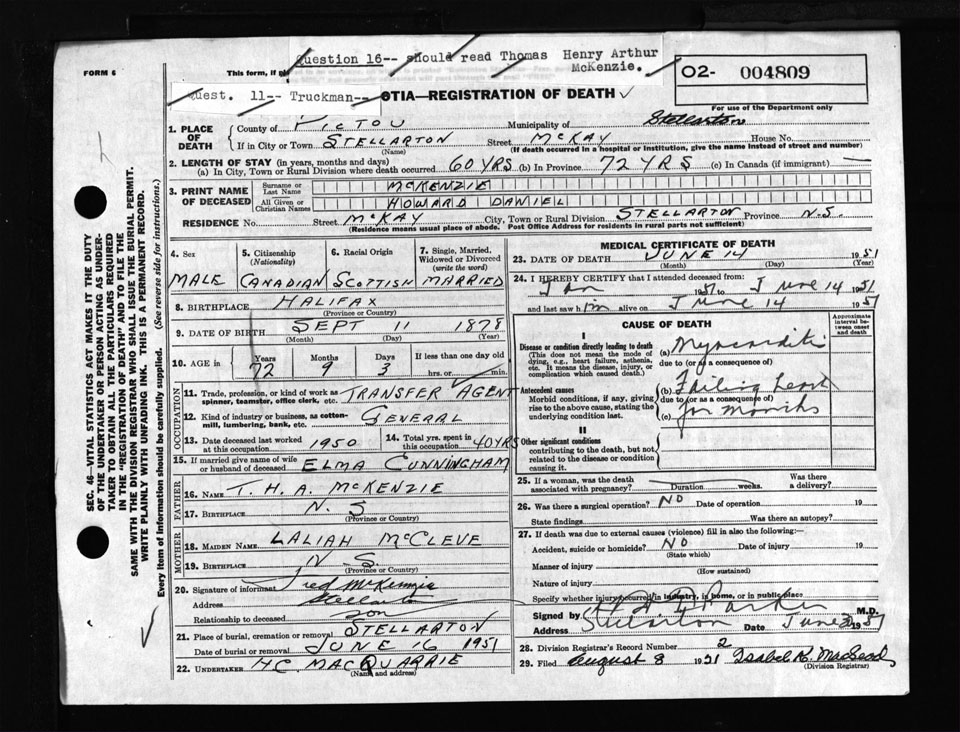 Question 16-- should read Thomas Henry Arthur
McKenzie.
FORM 6
This form, if
O2- 004809
Quest. 11-- Truckman--
OTIA—REGISTRATION OF DEATH
For use of the Department only
1. PLACE OF DEATH
County of PICTOU Municipality of Stellarton
If in City or Town STELLARTON Street MCKAY House No.
(Name) (If death occurred in a hospital or institution, give the name instead of street and number)
2. LENGTH OF STAY (in years, months and days)
(a) In City, Town or Rural Division where death occurred 60 YRS (b) In Province 72 YRS (c) In Canada (if immigrant) —
3. PRINT NAME OF DECEASED
Surname or Last Name MCKENZIE
All Given or Christian Names HOWARD DANIEL
RESIDENCE No. Street MCKAY City, Town or Rural Division STELLARTON Province N.S.
(Residence means usual place of abode. Post Office Address for residents in rural parts not sufficient)
4. Sex
MALE
5. Citizenship
(Nationality)
CANADIAN
6. Racial Origin
SCOTTISH
7. Single, Married, Widowed or Divorced
(write the word)
MARRIED
8. BIRTHPLACE HALIFAX
(Province or Country)
9. DATE OF BIRTH SEPT 11 1878
(Month) (Day) (Year)
10. AGE in
Years Months Days If less than one day old
72 9 3 hrs. or min.
OCCUPATION
11. Trade, profession, or kind of work as spinner, teamster, office clerk, etc. TRANSFER AGENT
12. Kind of industry or business, as cotton-mill, lumbering, bank, etc. GENERAL
13. Date deceased last worked at this occupation 1950
14. Total yrs. spent in this occupation 40 YRS
15. If married give name of wife or husband of deceased ELMA CUNNINGHAM
FATHER
16. NAME T. H. A. MCKENZIE
17. BIRTHPLACE N. S
(Province or Country)
MOTHER
18. MAIDEN NAME LALIAH MCCLEVE
19. BIRTHPLACE N. S.
(Province or Country)
20. Signature of informant Fred McKenzie
Address Stellarton
Relationship to deceased Son
21. Place of burial, cremation or removal STELLARTON
Date of burial or removal JUNE 16 1951
22. UNDERTAKER HC MACQUARRIE
(Name and address)
MEDICAL CERTIFICATE OF DEATH
23. DATE OF DEATH JUNE 14 1951
(Month) (Day) (Year)
24. I HEREBY CERTIFY that I attended deceased from:
Jan 1951 to June 14 1951
and last saw him alive on June 14 1951
CAUSE OF DEATH
Approximate interval between onset and death
I
Disease or condition directly leading to death
(This does not mean the mode of dying, e.g., heart failure, asthenia, etc. It means the disease, injury, or complication which caused death.)
(a) Myocarditis
due to (or as a consequence of)
Antecedent causes
Morbid conditions, if any, giving rise to the above cause, stating the underlying condition last.
(b) Failing heart
due to (or as a consequence of)
(c) for months
II
Other significant conditions
contributing to the death, but not related to the disease or condition causing it.
25. If a woman, was the death associated with pregnancy? Duration weeks. Was there a delivery?
26. Was there a surgical operation? NO Date of operation 19
State findings Was there an autopsy?
27. If death was due to external causes (violence) fill in also the following:—
Accident, suicide or homicide? NO Date of injury 19
(State which)
Manner of injury
(How sustained)
Nature of injury
Specify whether injury occurred in industry, in home, or in public place
Signed by Parker M.D.
Address Stellarton Date June 1951
28. Division Registrar's Record Number 2
29. Filed August 8 1951 Isabel K. MacLeod
(Division Registrar)
SEC. 46—VITAL STATISTICS ACT MAKES IT THE DUTY
OF THE UNDERTAKER OR PERSON ACTING AS UNDER-
TAKER TO OBTAIN ALL THE PARTICULARS REQUIRED
IN THE "REGISTRATION OF DEATH" AND TO FILE THE
SAME WITH THE DIVISION REGISTRAR WHO SHALL ISSUE THE BURIAL PERMIT.
WRITE PLAINLY WITH UNFADING INK. THIS IS A PERMANENT RECORD.
Every item of information should be carefully supplied. (See reverse side for instructions.)